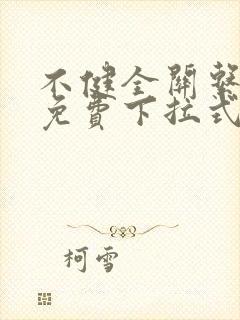 不健全關繫
免費下拉式
柯雪